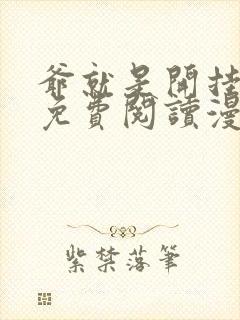 爺就是開挂
免費閱讀漫
紫禁落筆